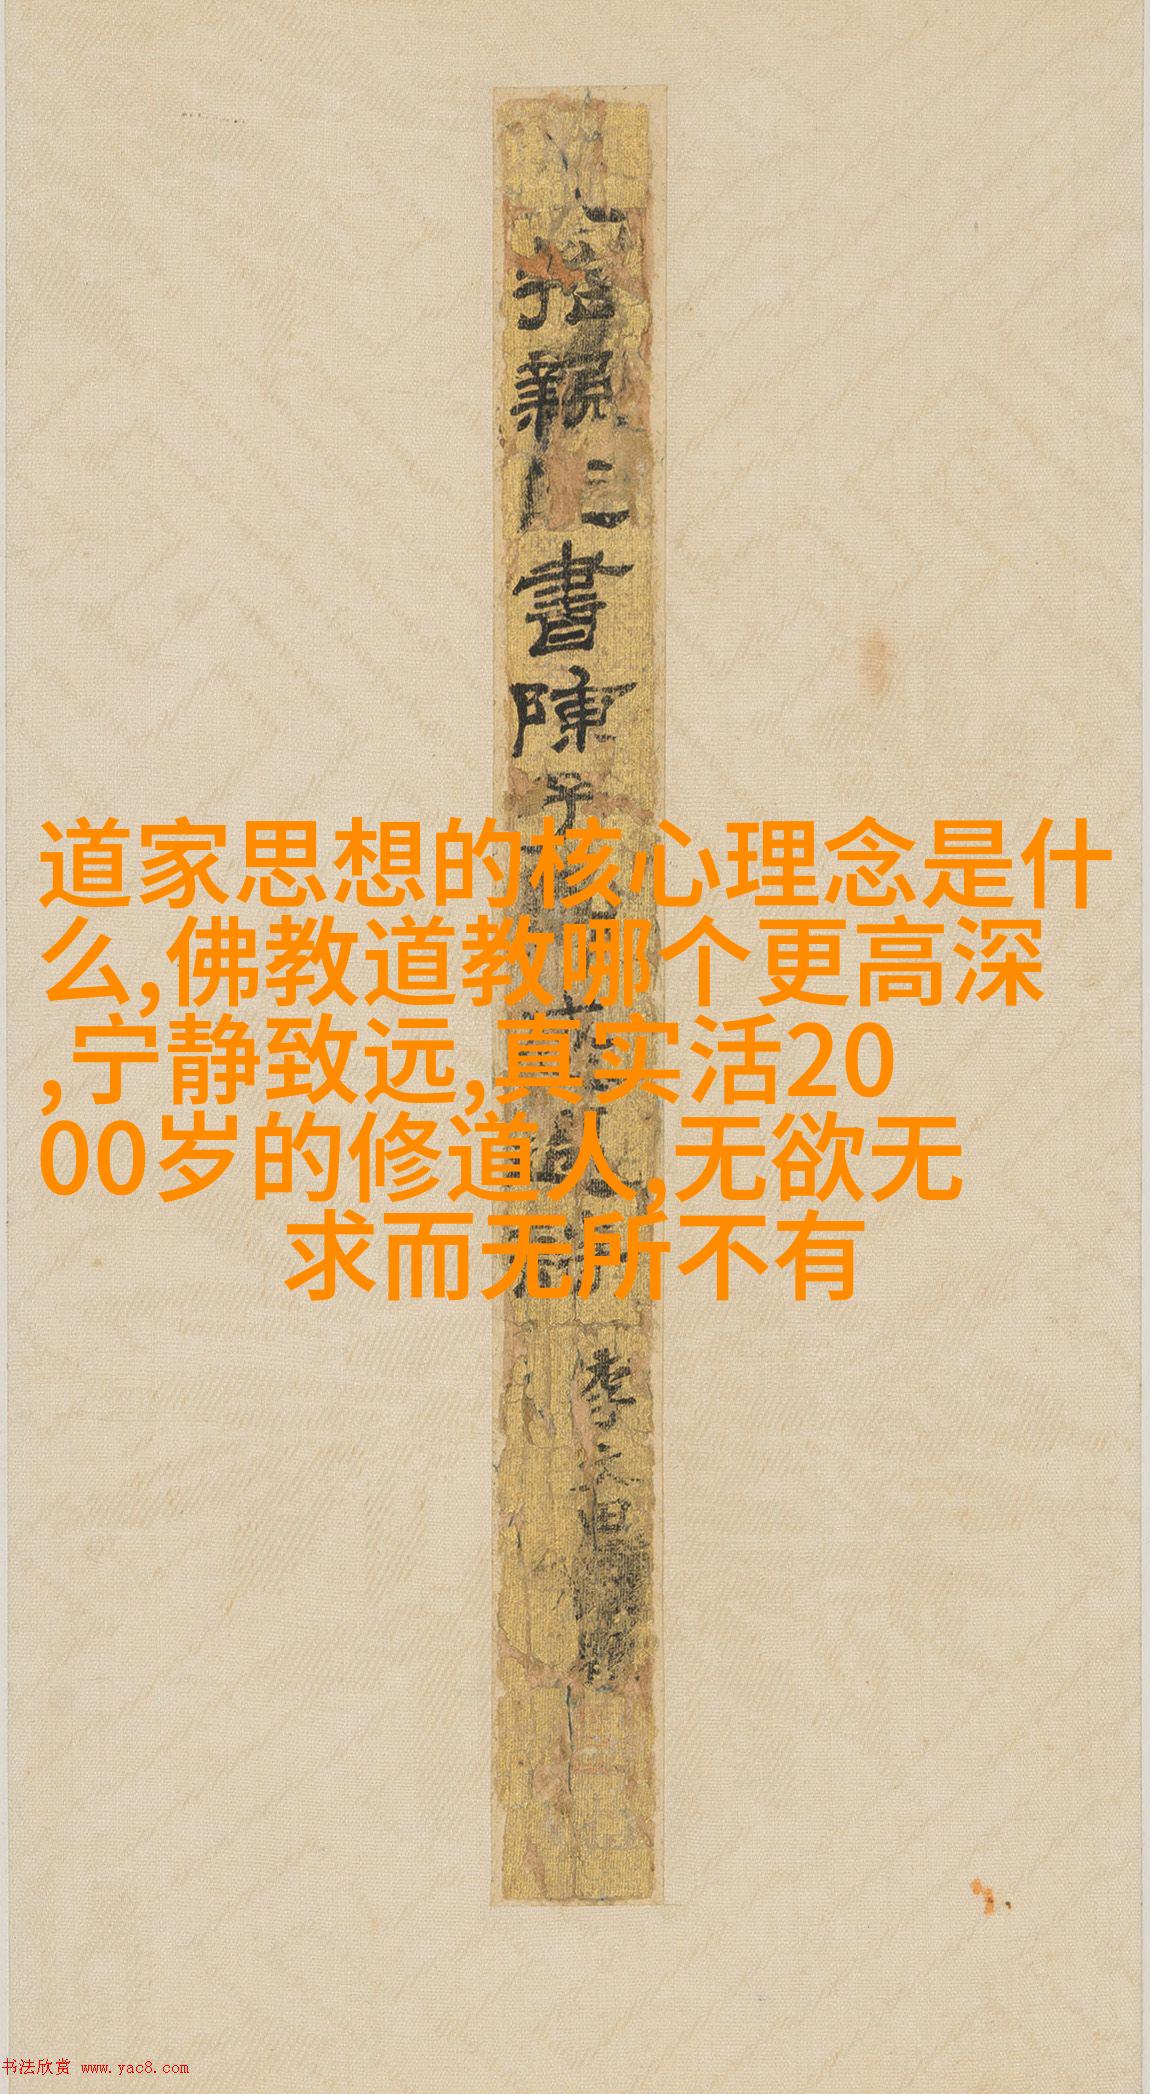 道家思想的核心理念是什
么,佛教道教哪个更高深
,宁静致远,真实活20
00岁的修道人,无欲无
求而无所不有
親
書陳
李文田
书法欣赏 www.yac8.com